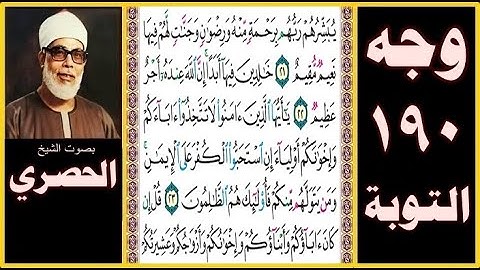 وجه
١٩٠
التوبة
يُبَشِّرُهُمْ رَبُّهُم بِرَحْمَةٍ مِّنْهُ وَرِضْوَٰنٍ وَجَنَّٰتٍ لَّهُمْ فِيهَا
نَعِيمٌ مُّقِيمٌ ٢١ خَٰلِدِينَ فِيهَا أَبَدًا إِنَّ ٱللَّهَ عِندَهُۥ أَجْرٌ
عَظِيمٌ ٢٢ يَٰٓأَيُّهَا ٱلَّذِينَ ءَامَنُوا۟ لَا تَتَّخِذُوٓا۟ ءَابَآءَكُمْ
وَإِخْوَٰنَكُمْ أَوْلِيَآءَ إِنِ ٱسْتَحَبُّوا۟ ٱلْكُفْرَ عَلَى ٱلْإِيمَٰنِ
وَمَن يَتَوَلَّهُم مِّنكُمْ فَأُو۟لَٰٓئِكَ هُمُ ٱلظَّٰلِمُونَ ٢٣ قُلْ إِن
كَانَ ءَابَآؤُكُمْ وَأَبْنَآؤُكُمْ وَإِخْوَٰنُكُمْ وَأَزْوَٰجُكُمْ وَعَشِيرَتُكُمْ
بصوت الشيخ
الحصري